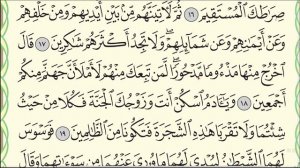 صِرَٰطَكَ ٱلْمُسْتَقِيمَ ١٦ ثُمَّ لَـَٔاتِيَنَّهُم مِّنۢ بَيْنِ أَيْدِيهِمْ وَمِنْ خَلْفِهِمْ
وَعَنْ أَيْمَٰنِهِمْ وَعَن شَمَآئِلِهِمْ ۖ وَلَا تَجِدُ أَكْثَرَهُمْ شَٰكِرِينَ ١٧ قَالَ
ٱخْرُجْ مِنْهَا مَذْءُومًا مَّدْحُورًا ۖ لَّمَن تَبِعَكَ مِنْهُمْ لَأَمْلَأَنَّ جَهَنَّمَ مِنكُمْ
أَجْمَعِينَ ١٨ وَيَٰٓـَٔادَمُ ٱسْكُنْ أَنتَ وَزَوْجُكَ ٱلْجَنَّةَ فَكُلَا مِنْ حَيْثُ
شِئْتُمَا وَلَا تَقْرَبَا هَٰذِهِ ٱلشَّجَرَةَ فَتَكُونَا مِنَ ٱلظَّٰلِمِينَ ١٩ فَوَسْوَسَ
لَهُمَا ٱلشَّيْطَٰنُ لِيُبْدِىَ لَهُمَا مَا وُۥرِىَ عَنْهُمَا مِن سَوْءَٰتِهِمَا وَقَالَ